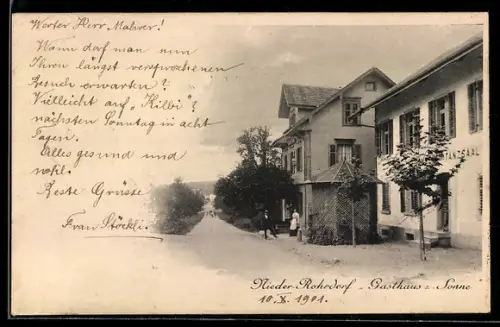 Werter Herr Mahrer!
Wann darf man nun
Ihren längst versprochenen
Besuch erwarten?
Vielleicht auf "Kilbi"?
nächsten Sonntag in acht
Tagen.
Alles gesund und
wohl.
Beste Grüsse
Frau Stöckli.
TANZSAAL
Nieder-Rohrdorf - Gasthaus z. Sonne
10. X. 1901.